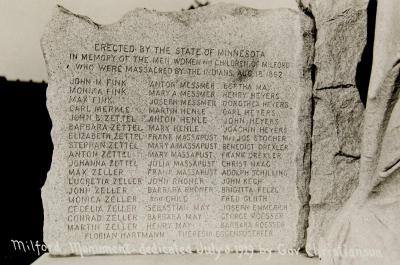 ERECTED BY THE STATE OF MINNESOTA
IN MEMORY OF THE MEN, WOMEN AND CHILDREN OF MILFORD
WHO WERE MASSACRED BY THE INDIANS, AUG. 18, 1862
JOHN M. FINK ANTON MESSMER BERTHA MAI
MONICA FINK MARY A. MESSMER HENRY HEYERS
MAX FINK JOSEPH MESSMER DOROTHEA HEYERS
CARL MERKLE MARTIN HENLE CARL HEYERS
JOHN B. ZETTEL ANTON HENLE JOHN HEYERS
BARBARA ZETTEL MARY HENLE JOACHIM HEYERS
ELIZABETH ZETTEL FRANK MASSAPUST MRS JOE STOCKER
STEPHAN ZETTEL MARY A. MASSAPUST BENEDICT DREXLER
ANTON ZETTEL FRANK DREXLER
JOHANNA ZETTEL JULIA MASSAPUST CHRIST HAAG
MAX ZELLER FRANK MASSAPUST ADOLPH SCHILLING
LUCRETIA ZELLER JOHN ROHNER JOHN KECK
JOHN ZELLER BARBARA ROHNER BRIGITTA PELZL
MONICA ZELLER AND CHILD FRED GLUTH
CECELIA ZELLER SEBASTIAN MAY JOSEPH EMMERICH
CONRAD ZELLER BARBARA MAY GEORGE ROESSER
MARTIN ZELLER HENRY MAY BARBARA ROESSER
FLORIAN HARTMANN THERESIA EGGENSDORFER
Milford Monument dedicated by Gov. Christianson